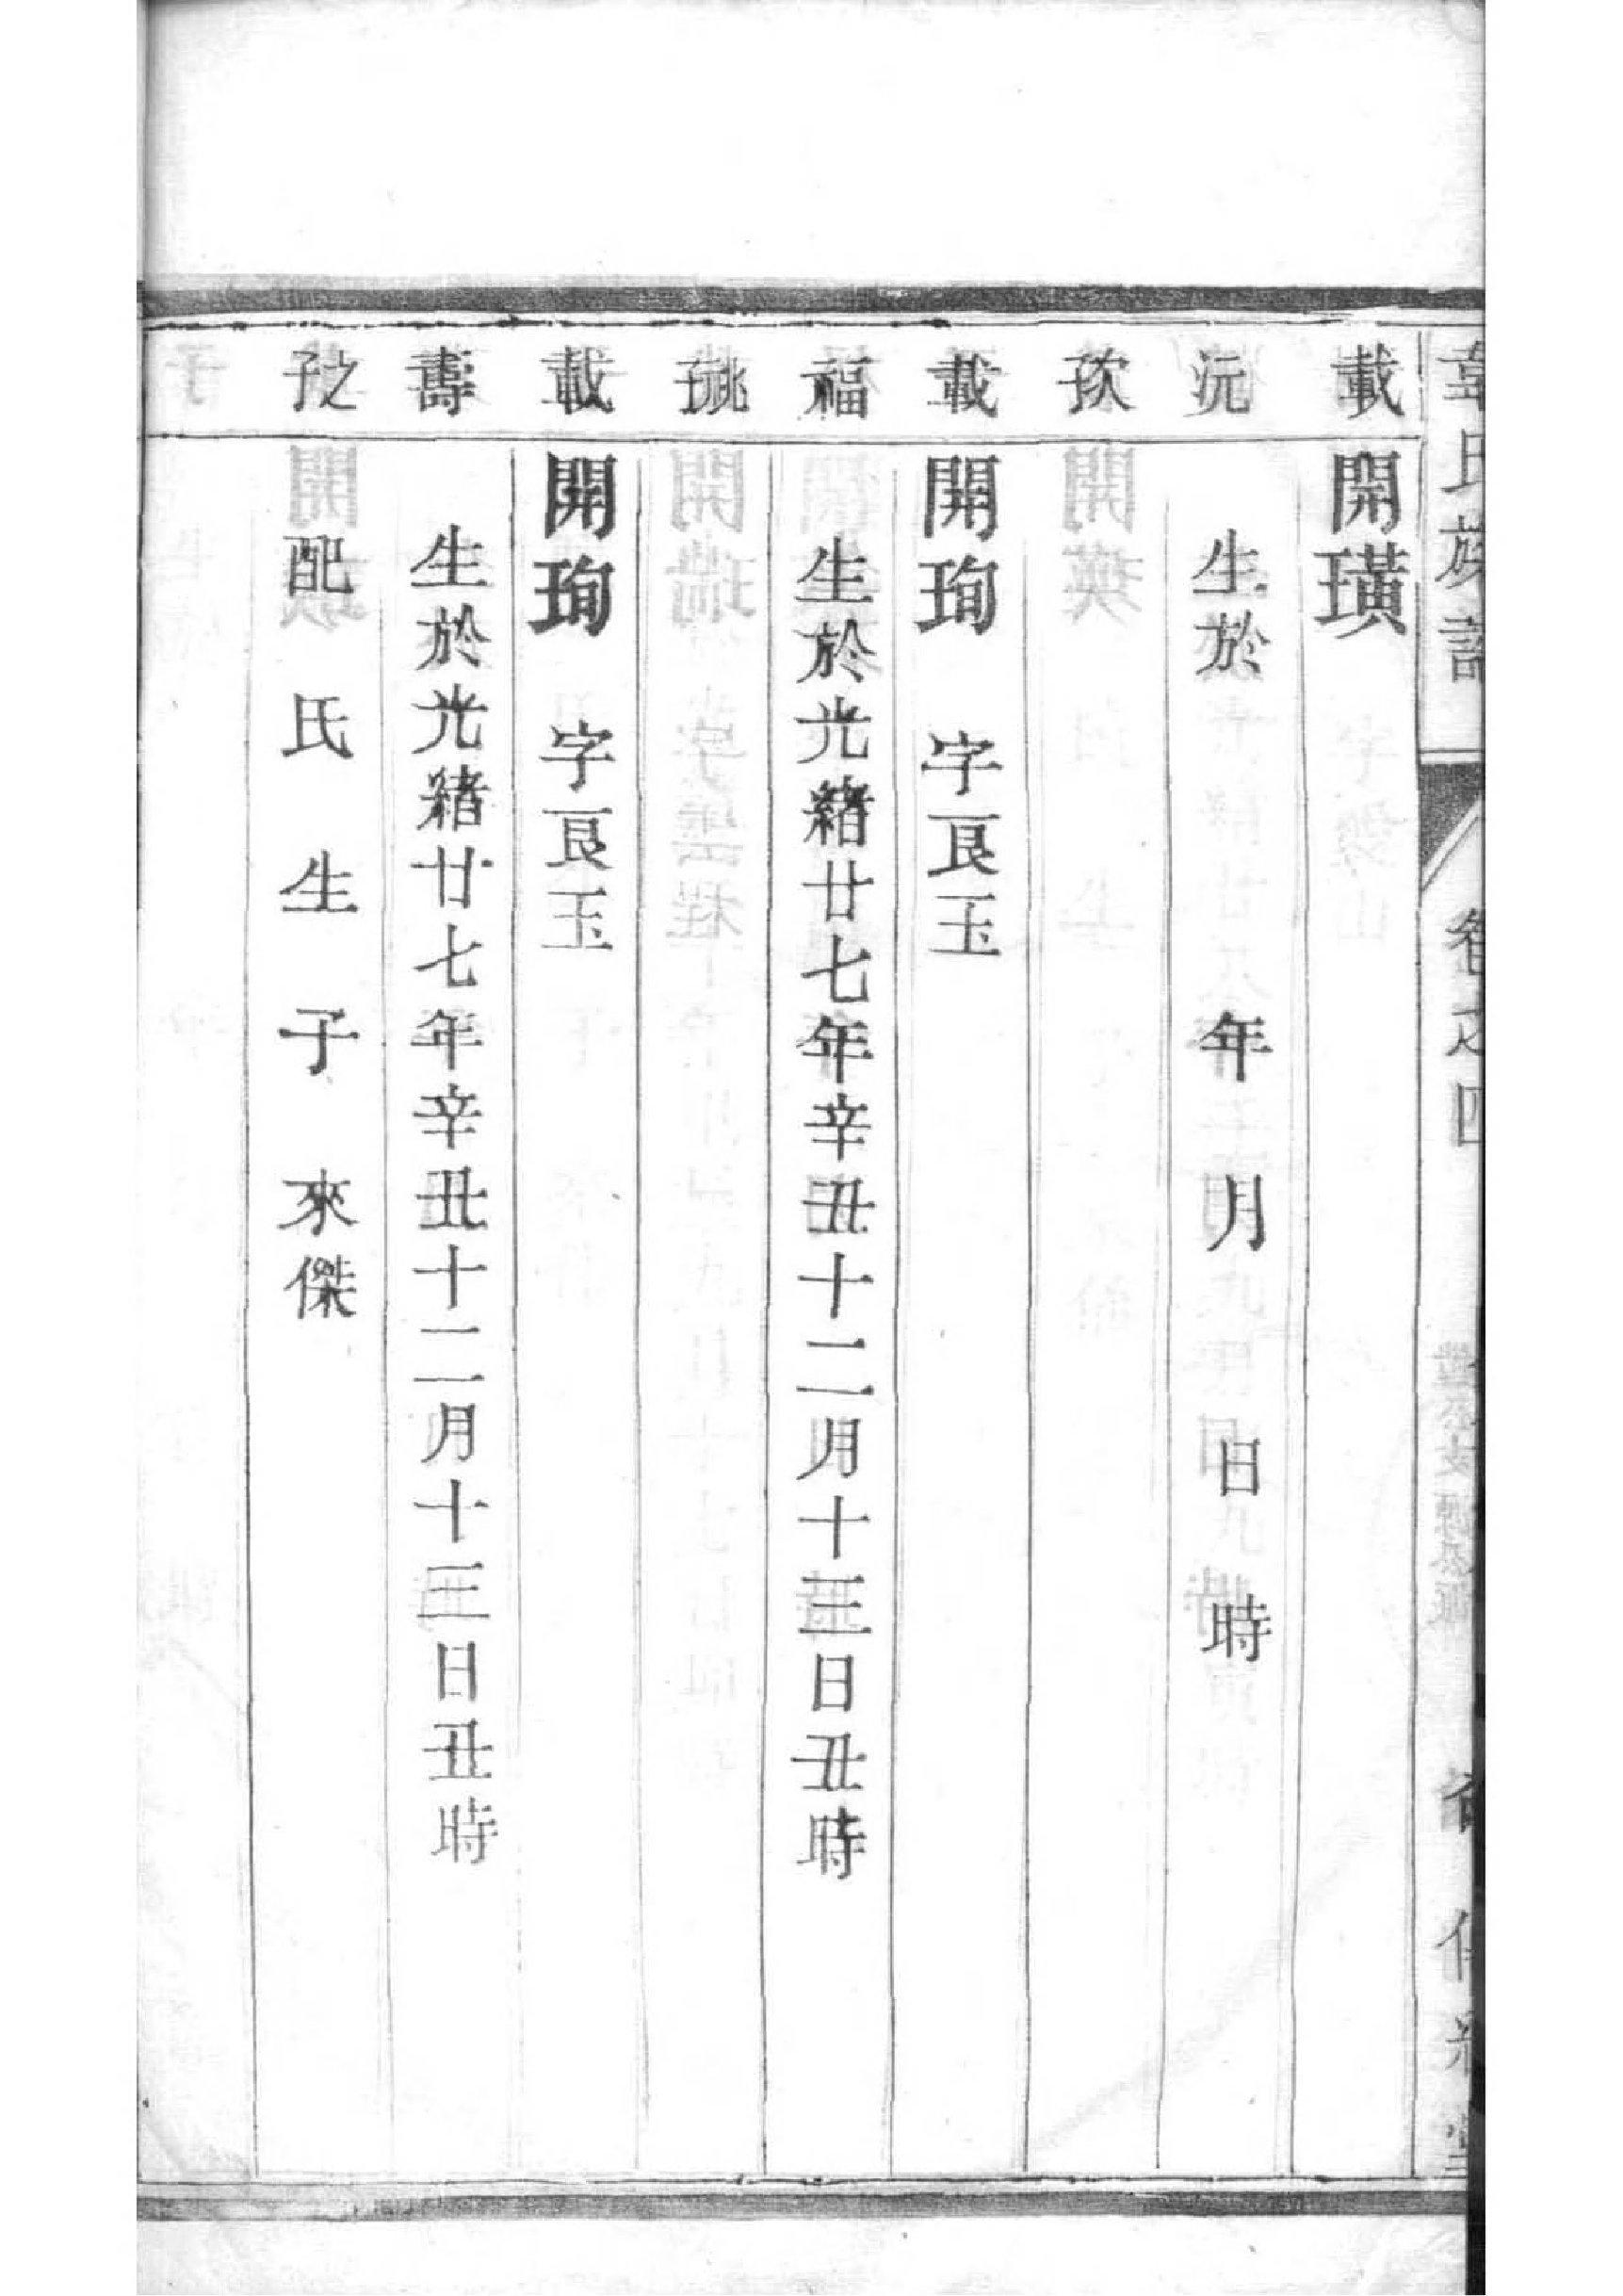 韋氏族譜 卷之四
載 開璜
沅 生於 年 月 日 時
次子
載 開珣 字良玉
福 生於光緒廿七年辛丑十二月十三日丑時
祧子
載 開珣 字良玉
壽 生於光緒廿七年辛丑十二月十三日丑時
之子 配 氏 生 子 來傑